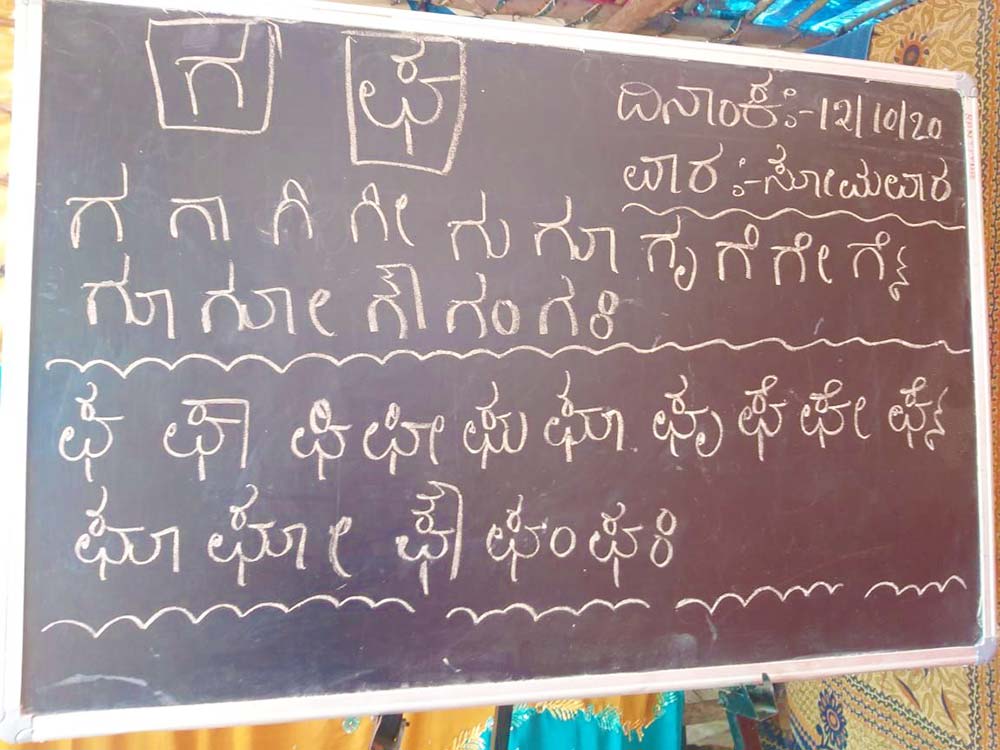 ಗ ಘ
ದಿನಾಂಕ:-12/10/20
ವಾರ :-ಸೋಮವಾರ
ಗ ಗಾ ಗಿ ಗೀ ಗು ಗೂ ಗೃ ಗೆ ಗೇ ಗೈ
ಗೊ ಗೋ ಗೌ ಗಂ ಗಃ
ಘ ಘಾ ಘಿ ಘೀ ಘು ಘೂ ಘೃ ಘೆ ಘೇ ಘೈ
ಘೊ ಘೋ ಘೌ ಘಂ ಘಃ